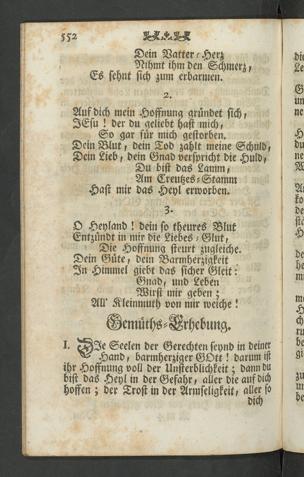 552
Dein Vatter-Herz
Nihmt ihm den Schmerz,
Es sehnt sich zum erbarmen.
2.
Auf dich mein Hoffnung gründet sich,
JEsu! der du geliebt hast mich,
So gar für mich gestorben.
Dein Blut, dein Tod zahlt meine Schuld,
Dein Lieb, dein Gnad verspricht die Huld,
Du bist das Lamm,
Am Creutzes-Stamm
Hast mir das Heyl erworben.
3.
O Heyland! dein so theures Blut
Entzündt in mir die Liebes-Glut,
Die Hoffnung steurt zugleiche.
Dein Güte, dein Barmherzigkeit
In Himmel giebt das sicher Gleit:
Gnad, und Leben
Wirst mir geben;
All' Kleinmuth von mir weiche!
Gemüths-Erhebung.
I. DIe Seelen der Gerechten seynd in deiner
Hand, barmherziger GOtt! darum ist
ihr Hoffnung voll der Unsterblichkeit; dann du
bist das Heyl in der Gefahr, aller die auf dich
hoffen; der Trost in der Armseligkeit, aller so
dich